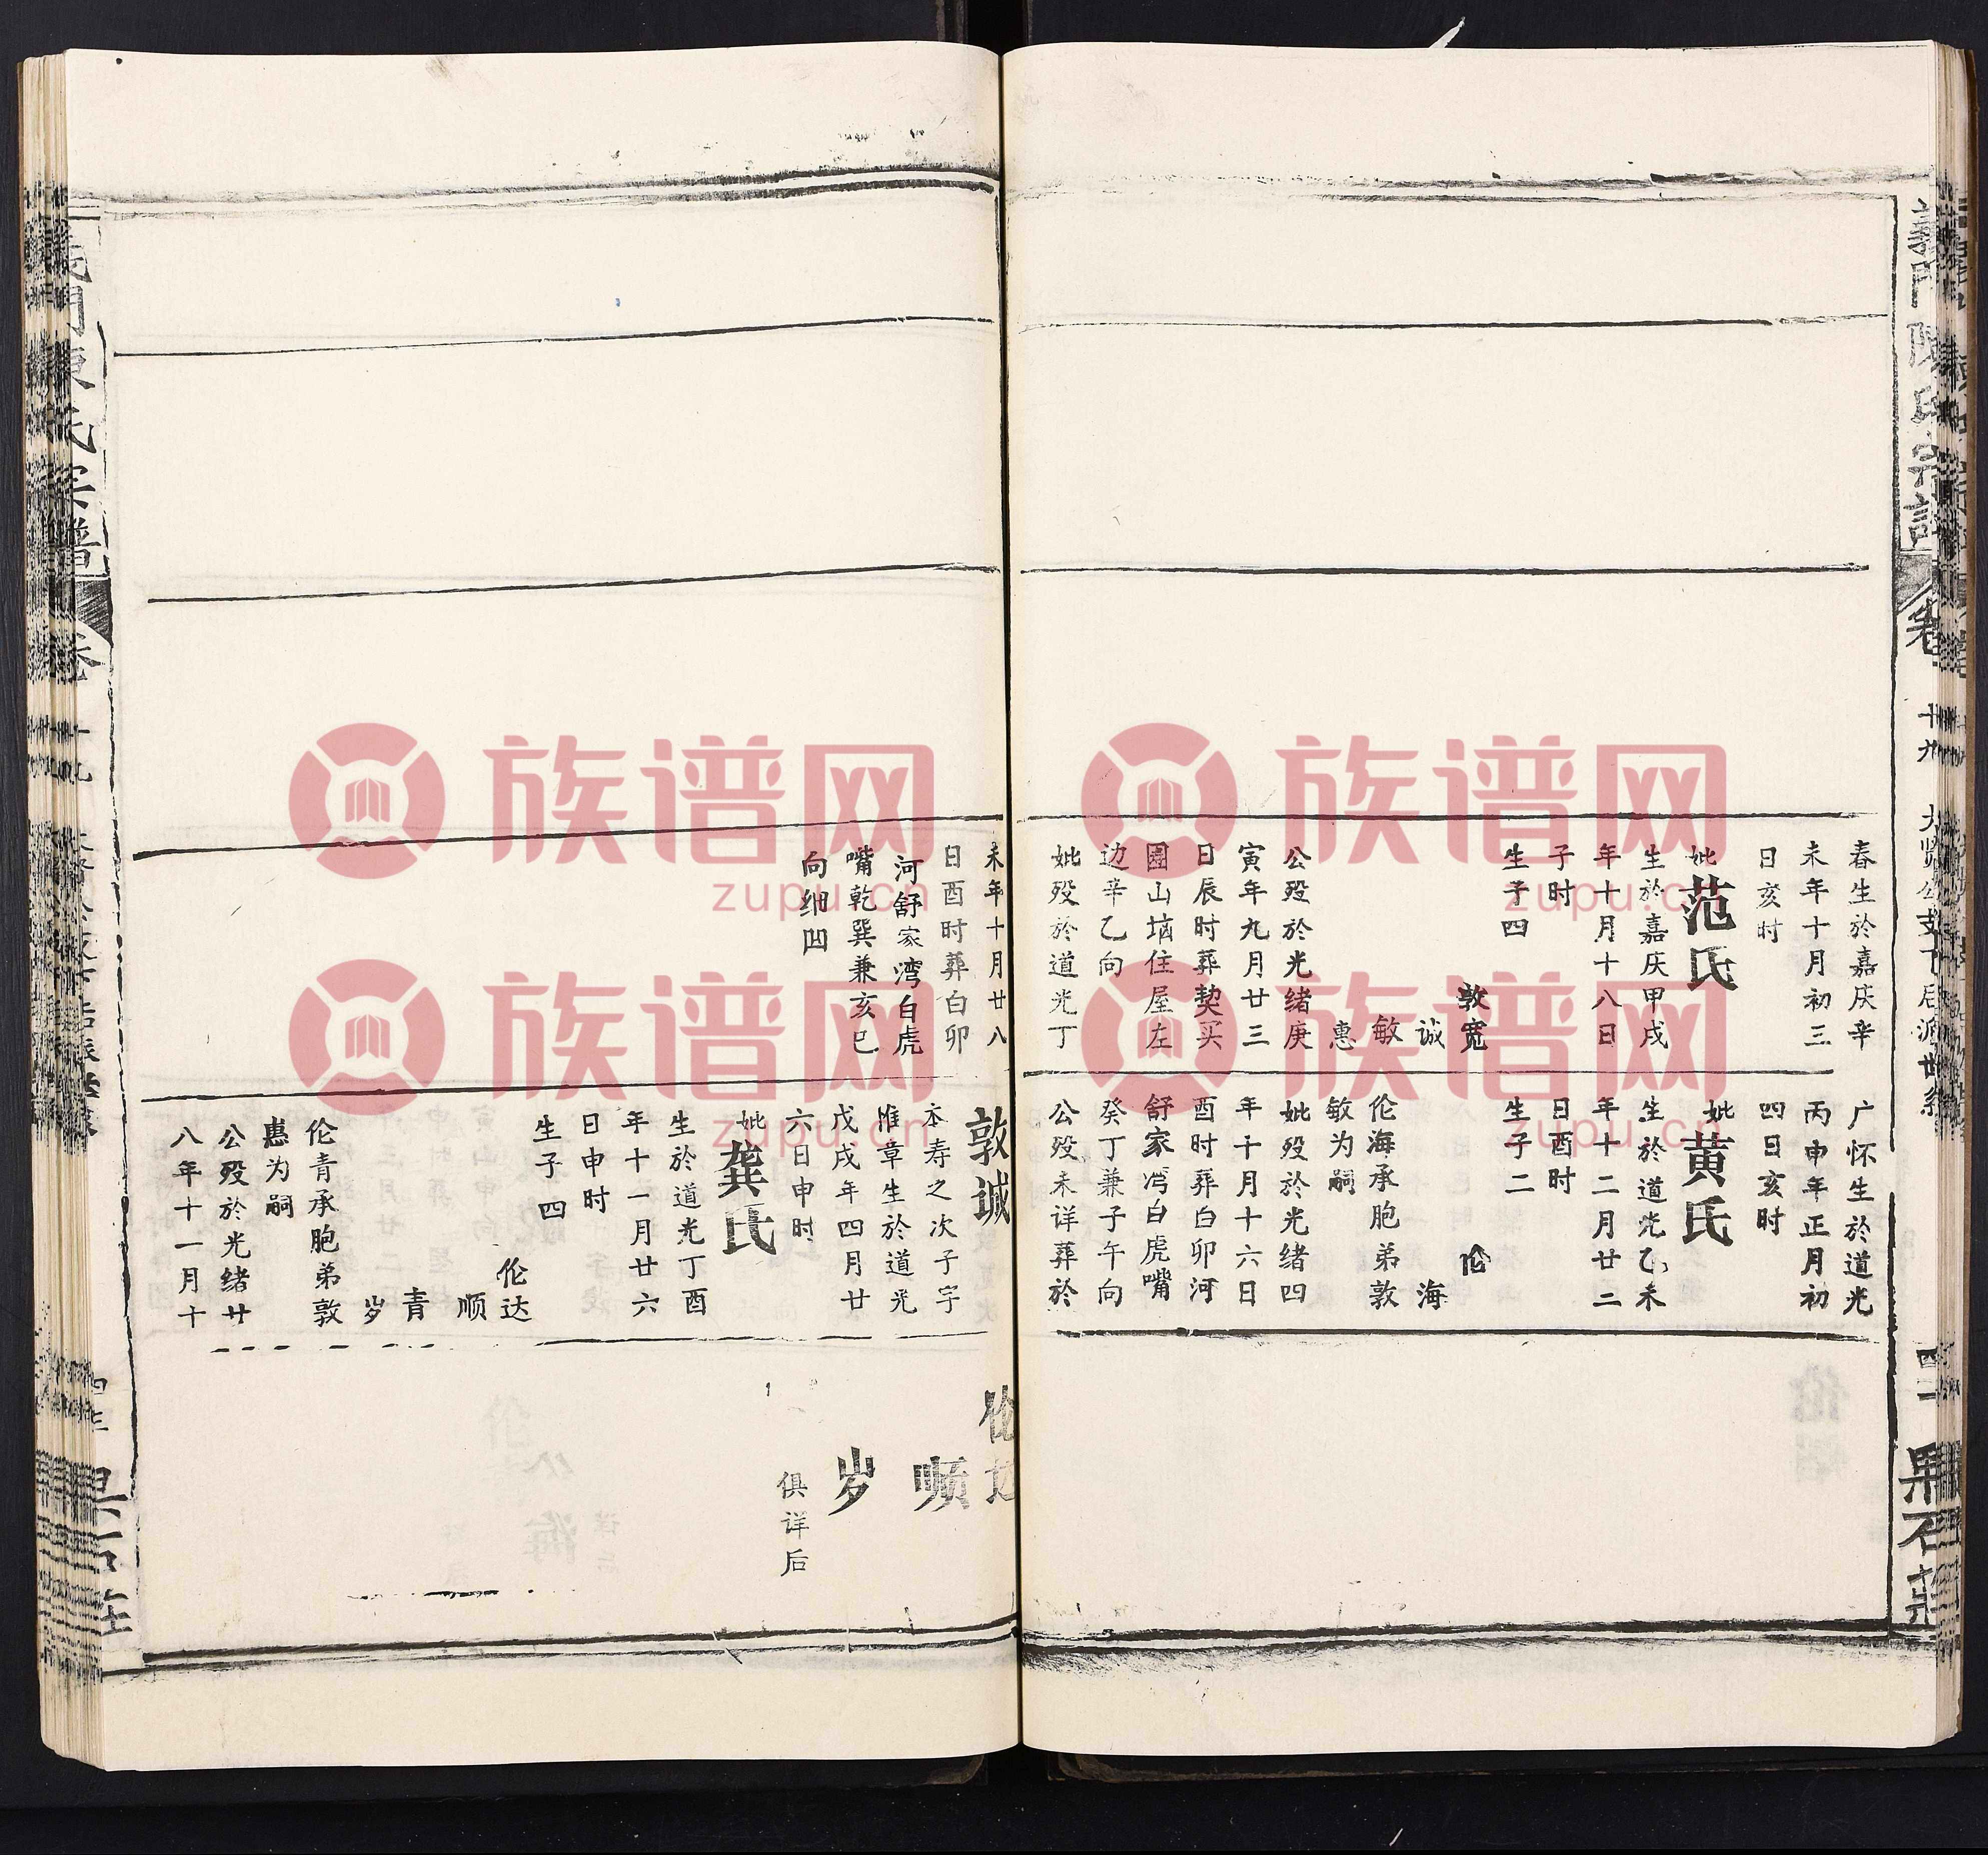 義門陳氏宗譜
卷
十九
大贤公支下后派世系
果石莊
春生於嘉庆辛
未年十月初三
日亥时
妣范氏
生於嘉庆甲戌
年十月十八日
子时
生子四
敦宽
诚
敏
惠
公殁於光绪庚
寅年九月廿三
日辰时葬契买
園山垴住屋左
边辛乙向
妣殁於道光丁
未年十月廿八
日酉时葬白卯
河舒家湾白虎
嘴乾巽兼亥巳
向细凹
广怀生於道光
丙申年正月初
四日亥时
妣黄氏
生於道光乙未
年十二月廿二
日酉时
生子二
伦
海
伦海承胞弟敦
敏为嗣
妣殁於光绪四
年十月十六日
酉时葬白卯河
舒家湾白虎嘴
癸丁兼子午向
公殁未详葬於
敦诚
本寿之次子字
惟章生於道光
戊戌年四月廿
六日申时
妣龚氏
生於道光丁酉
年十一月廿六
日申时
生子四
伦达
顺
青
岁
伦青承胞弟敦
惠为嗣
公殁於光绪廿
八年十一月十
伦达
顺
岁
俱详后
族谱网
zupu.cn
族谱网
zupu.cn
族谱网
zupu.cn
族谱网
zupu.cn